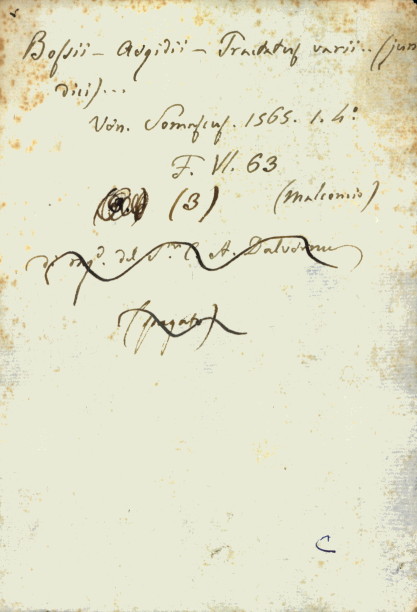 Bossii - Aegidii - Tractatus varii.. (juri
dici)...
Ven. Somascus. 1565. 1. 4º
F. VI. 63
(3) (Malconcio)
del Sr. C. A.
(pagato)
C